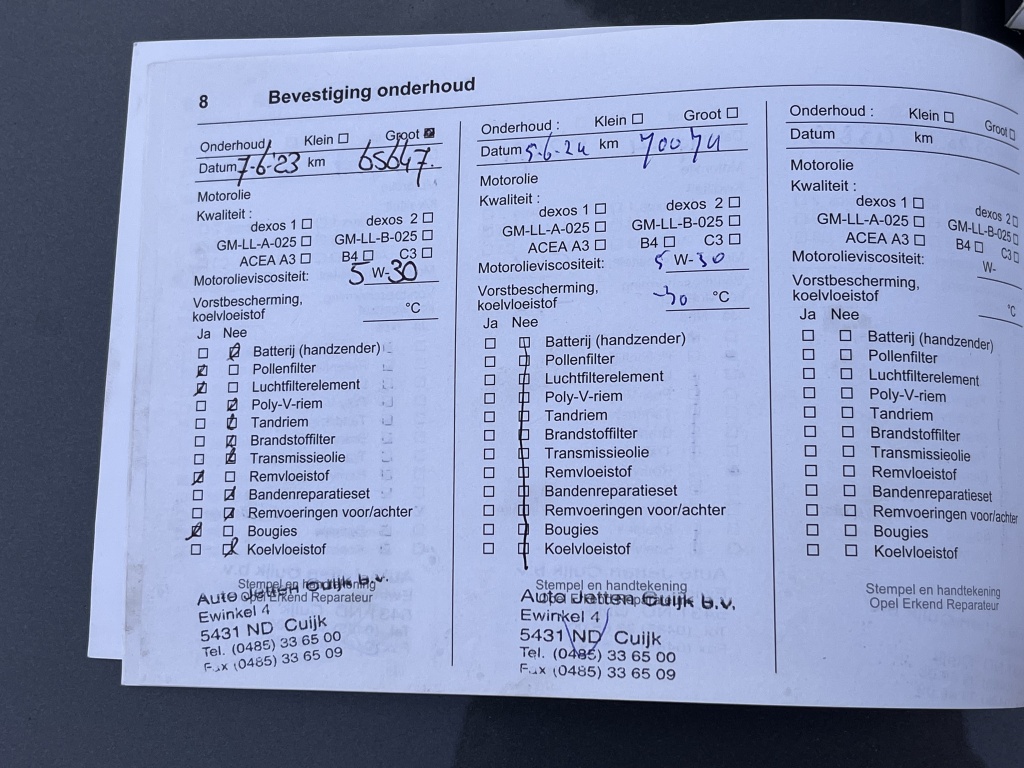 8 Bevestiging onderhoud
Onderhoud Klein ☐ Groot ☒
Datum 7-6-'23 km 65647.
Motorolie
Kwaliteit :
dexos 1 ☐ dexos 2 ☐
GM-LL-A-025 ☐ GM-LL-B-025 ☐
ACEA A3 ☐ B4 ☐ C3 ☐
Motorolieviscositeit: 5 W-30
Vorstbescherming,
koelvloeistof °C
Ja Nee
☐ ☒ Batterij (handzender)
☒ ☐ Pollenfilter
☒ ☐ Luchtfilterelement
☐ ☒ Poly-V-riem
☐ ☒ Tandriem
☐ ☒ Brandstoffilter
☐ ☒ Transmissieolie
☒ ☐ Remvloeistof
☐ ☒ Bandenreparatieset
☐ ☒ Remvoeringen voor/achter
☒ ☐ Bougies
☐ ☒ Koelvloeistof
Stempel en handtekening
Opel Erkend Reparateur
Auto Jetten Cuijk b.v.
Ewinkel 4
5431 ND Cuijk
Tel. (0485) 33 65 00
Fax (0485) 33 65 09
Onderhoud : Klein ☐ Groot ☐
Datum 5-6-24 km 70074
Motorolie
Kwaliteit :
dexos 1 ☐ dexos 2 ☐
GM-LL-A-025 ☐ GM-LL-B-025 ☐
ACEA A3 ☐ B4 ☐ C3 ☐
Motorolieviscositeit: 5 W-30
Vorstbescherming,
koelvloeistof -30 °C
Ja Nee
☐ ☐ Batterij (handzender)
☐ ☐ Pollenfilter
☐ ☐ Luchtfilterelement
☐ ☐ Poly-V-riem
☐ ☐ Tandriem
☐ ☐ Brandstoffilter
☐ ☐ Transmissieolie
☐ ☐ Remvloeistof
☐ ☐ Bandenreparatieset
☐ ☐ Remvoeringen voor/achter
☐ ☐ Bougies
☐ ☐ Koelvloeistof
Stempel en handtekening
Auto Jetten Cuijk b.v.
Ewinkel 4
5431 ND Cuijk
Tel. (0485) 33 65 00
Fax (0485) 33 65 09
Onderhoud : Klein ☐ Groot ☐
Datum km
Motorolie
Kwaliteit :
dexos 1 ☐ dexos 2 ☐
GM-LL-A-025 ☐ GM-LL-B-025 ☐
ACEA A3 ☐ B4 ☐ C3 ☐
Motorolieviscositeit: W-
Vorstbescherming,
koelvloeistof °C
Ja Nee
☐ ☐ Batterij (handzender)
☐ ☐ Pollenfilter
☐ ☐ Luchtfilterelement
☐ ☐ Poly-V-riem
☐ ☐ Tandriem
☐ ☐ Brandstoffilter
☐ ☐ Transmissieolie
☐ ☐ Remvloeistof
☐ ☐ Bandenreparatieset
☐ ☐ Remvoeringen voor/achter
☐ ☐ Bougies
☐ ☐ Koelvloeistof
Stempel en handtekening
Opel Erkend Reparateur